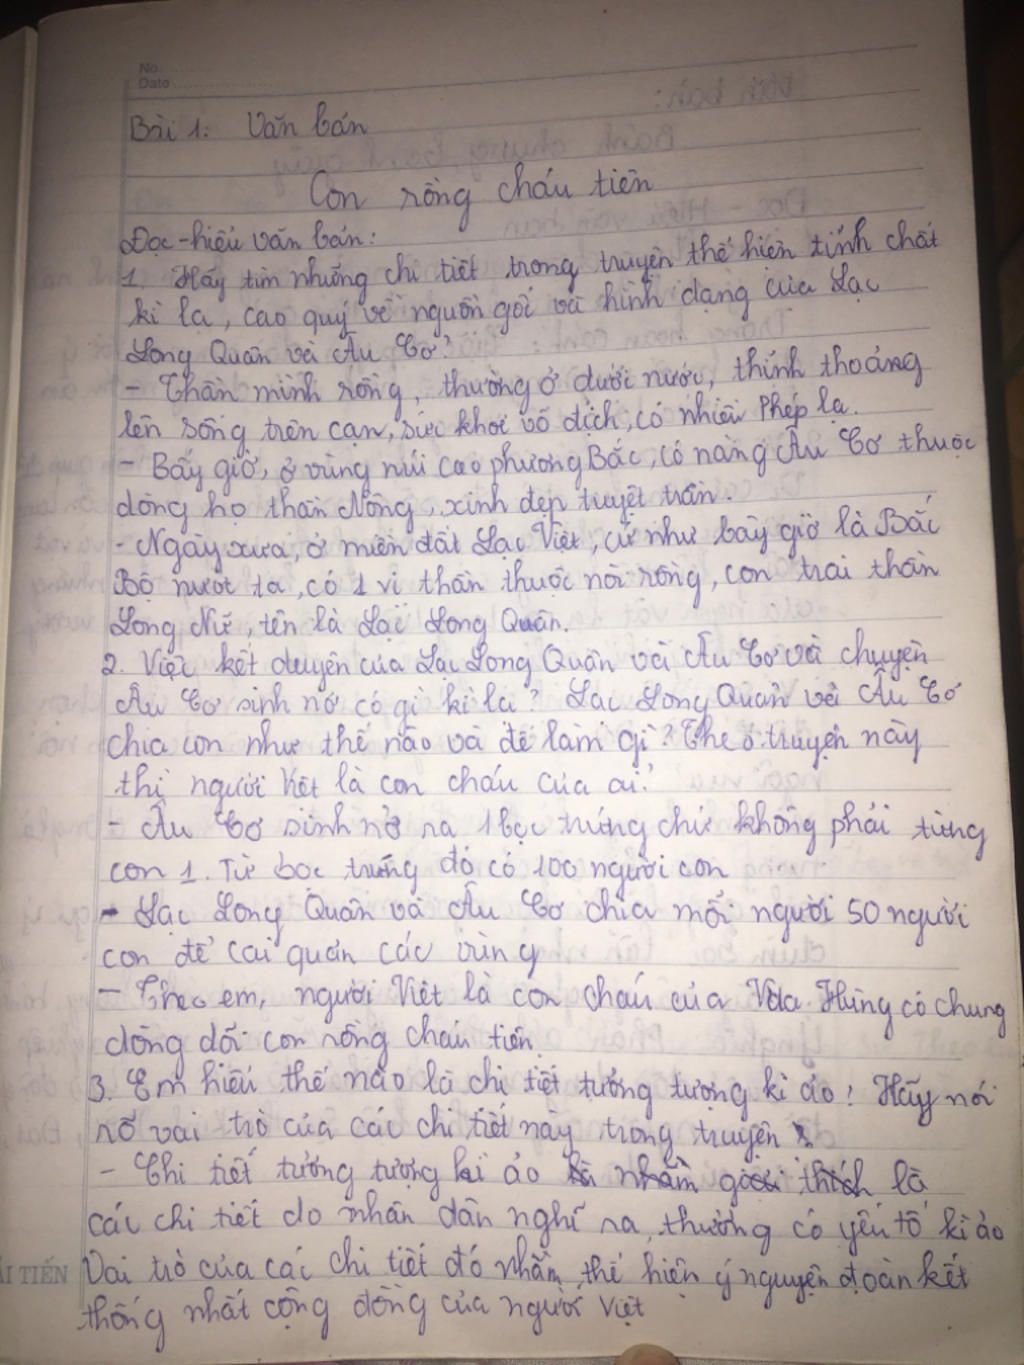 No.
Date
Bài 1: Văn bản
Con rồng cháu tiên
Đọc-hiểu văn bản:
1. Hãy tìm những chi tiết trong truyện thể hiện tính chất
kì lạ, cao quý về nguồn gốc và hình dạng của Lạc
Long Quân và Âu Cơ?
- Thần mình rồng, thường ở dưới nước, thỉnh thoảng
lên sống trên cạn, sức khỏe vô địch, có nhiều phép lạ.
- Bấy giờ, ở vùng núi cao phương Bắc, có nàng Âu Cơ thuộc
dòng họ thần Nông, xinh đẹp tuyệt trần.
- Ngày xưa, ở miền đất Lạc Việt, cứ như bây giờ là Bắc
Bộ nước ta, có 1 vị thần thuộc nòi rồng, con trai thần
Long Nữ, tên là Lạc Long Quân.
2. Việc kết duyên của Lạc Long Quân và Âu Cơ và chuyện
Âu Cơ sinh nở có gì kì lạ? Lạc Long Quân và Âu Cơ
chia con như thế nào và để làm gì? Theo truyện này
thì người Việt là con cháu của ai?
- Âu Cơ sinh nở ra 1 bọc trứng chứ không phải từng
con 1. Từ bọc trứng đó có 100 người con
- Lạc Long Quân và Âu Cơ chia mỗi người 50 người
con để cai quản các vùng
- Theo em, người Việt là con cháu của Vua Hùng có chung
dòng dõi con rồng cháu tiên.
3. Em hiểu thế nào là chi tiết tưởng tượng kì ảo? Hãy nói
rõ vai trò của các chi tiết này trong truyện?
- Chi tiết tưởng tượng kì ảo là
các chi tiết do nhân dân nghĩ ra, thường có yếu tố kì ảo
Vai trò của các chi tiết đó nhằm thể hiện ý nguyện đoàn kết
thống nhất cộng đồng của người Việt
TIẾN